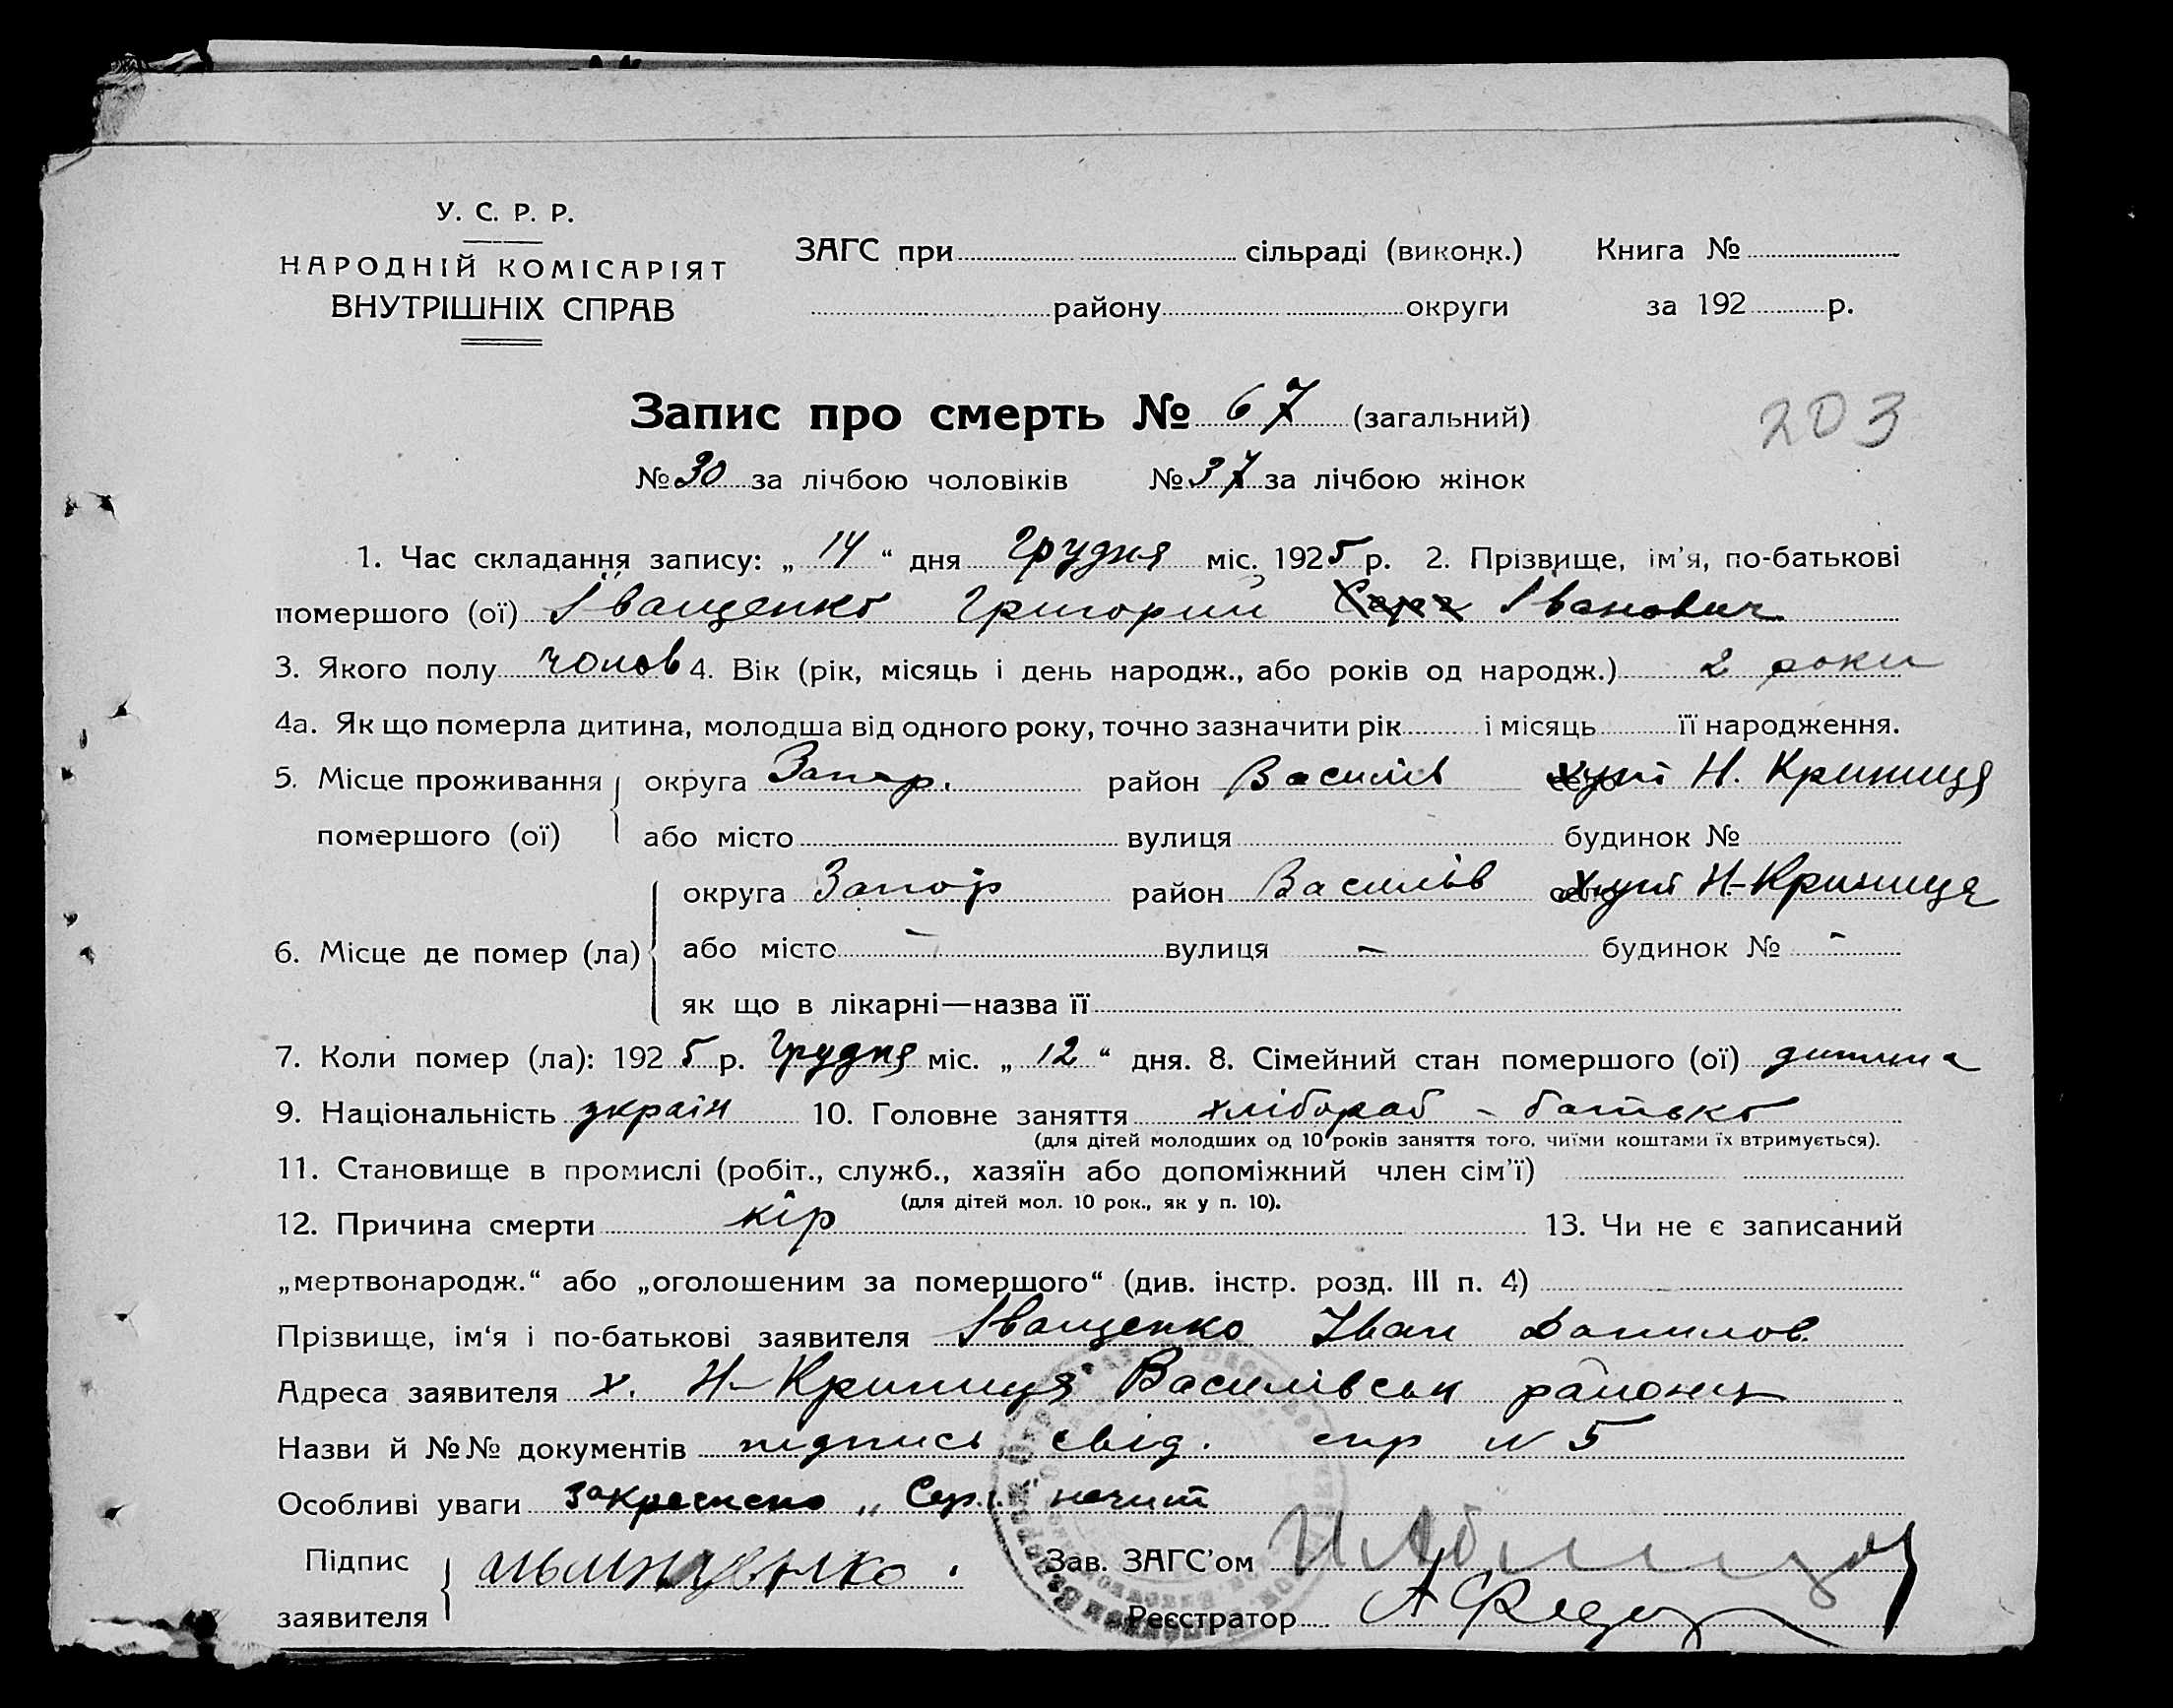 У. С. Р. Р.
НАРОДНІЙ КОМІСАРІЯТ
ВНУТРІШНІХ СПРАВ
ЗАГС при сільраді (виконк.) Книга №
району округи за 192 р.
Запис про смерть № 67 (загальний)
203
№ 30 за лічбою чоловіків № 37 за лічбою жінок
1. Час складання запису: „ 14 “ дня Грудня міс. 1925 р. 2. Прізвище, ім’я, по-батькові
помершого (ої) Іващенко Григорий Іванович
3. Якого полу чолов 4. Вік (рік, місяць і день народж., або років од народж.) 2 роки
4а. Як що померла дитина, молодша від одного року, точно зазначити рік і місяць її народження.
5. Місце проживання округа Запор. район Василів хут Н. Криниця
помершого (ої) або місто вулиця будинок №
округа Запор район Василів хут Н-Криниця
6. Місце де помер (ла) або місто – вулиця – будинок № -
як що в лікарні—назва її
7. Коли помер (ла): 1925 р. Грудня міс. „ 12 “ дня. 8. Сімейний стан помершого (ої) дитина
9. Національність україн 10. Головне заняття хлібороб - батько
(для дітей молодших од 10 років заняття того, чиїми коштами їх втримується).
11. Становище в промислі (робіт., служб., хазяїн або допоміжний член сім’ї)
(для дітей мол. 10 рок., як у п. 10).
12. Причина смерти кір 13. Чи не є записаний
„мертвонародж.“ або „оголошеним за помершого“ (див. інстр. розд. III п. 4)
Прізвище, ім‘я і по-батькові заявителя Іващенко Іван Данилов.
Адреса заявителя х. Н-Криниця Василівськ району
Назви й №№ документів підпись свід. спр N 5
Особливі уваги закреслено „Сер.“ не чит
Підпис
заявителя
Зав. ЗАГС’ом
Реєстратор